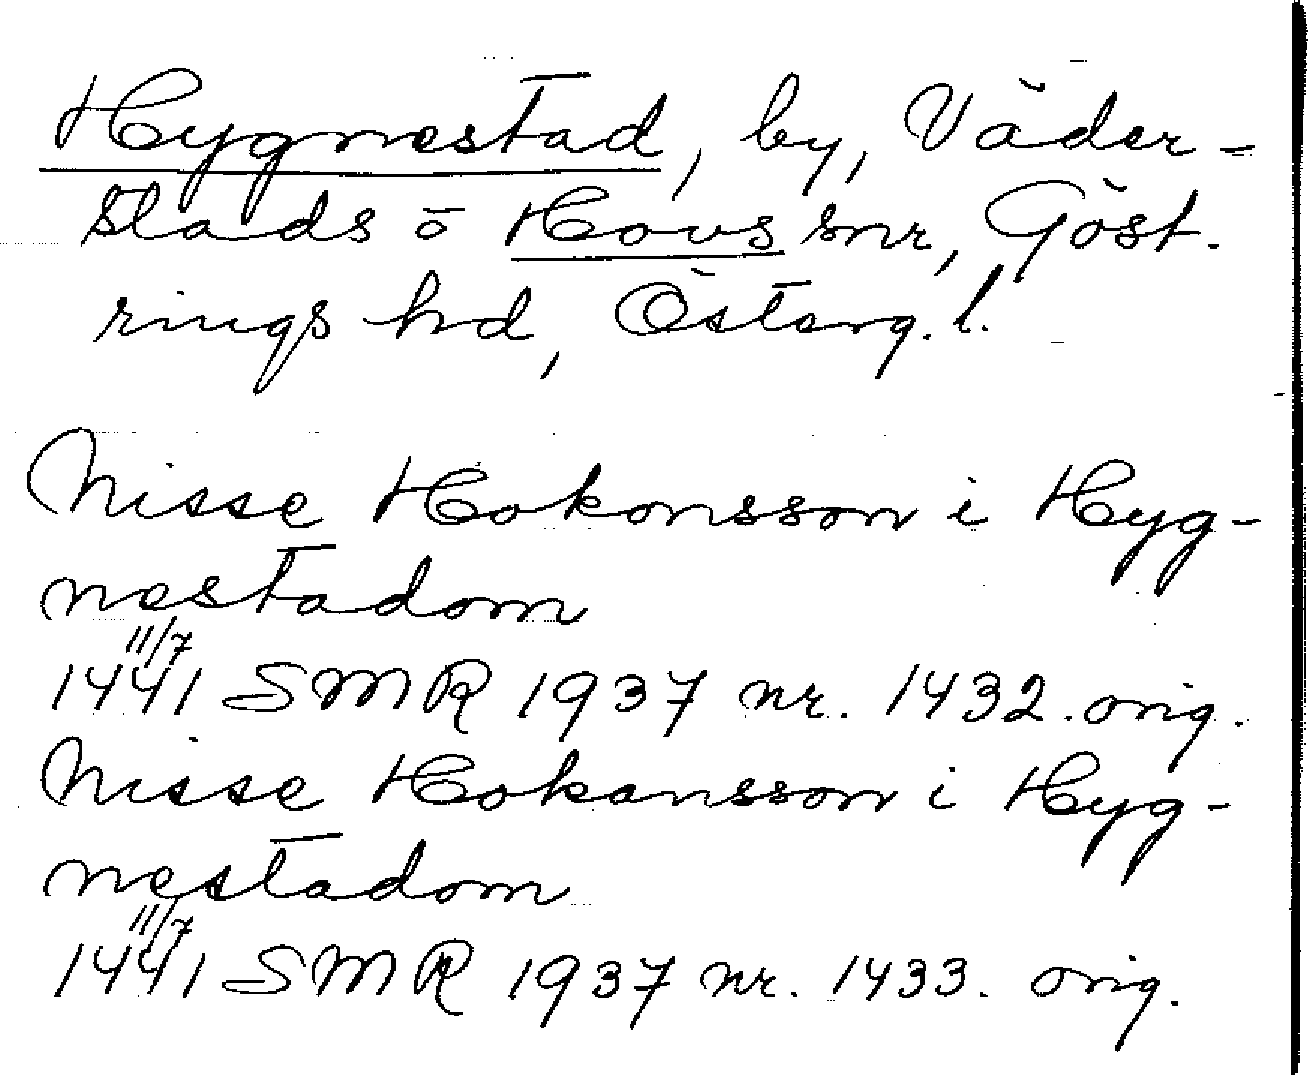 Hygnestad, by, Väder-
stads o Hovs snr, Göst.
rings hd, Österg. l.
Nisse Hokonsson i Hyg-
nestadom
11/7
1441 SMR 1937 nr. 1432. orig.
Nisse Hokansson i Hyg-
nestadom
11/7
1441 SMR 1937 nr. 1433. orig.